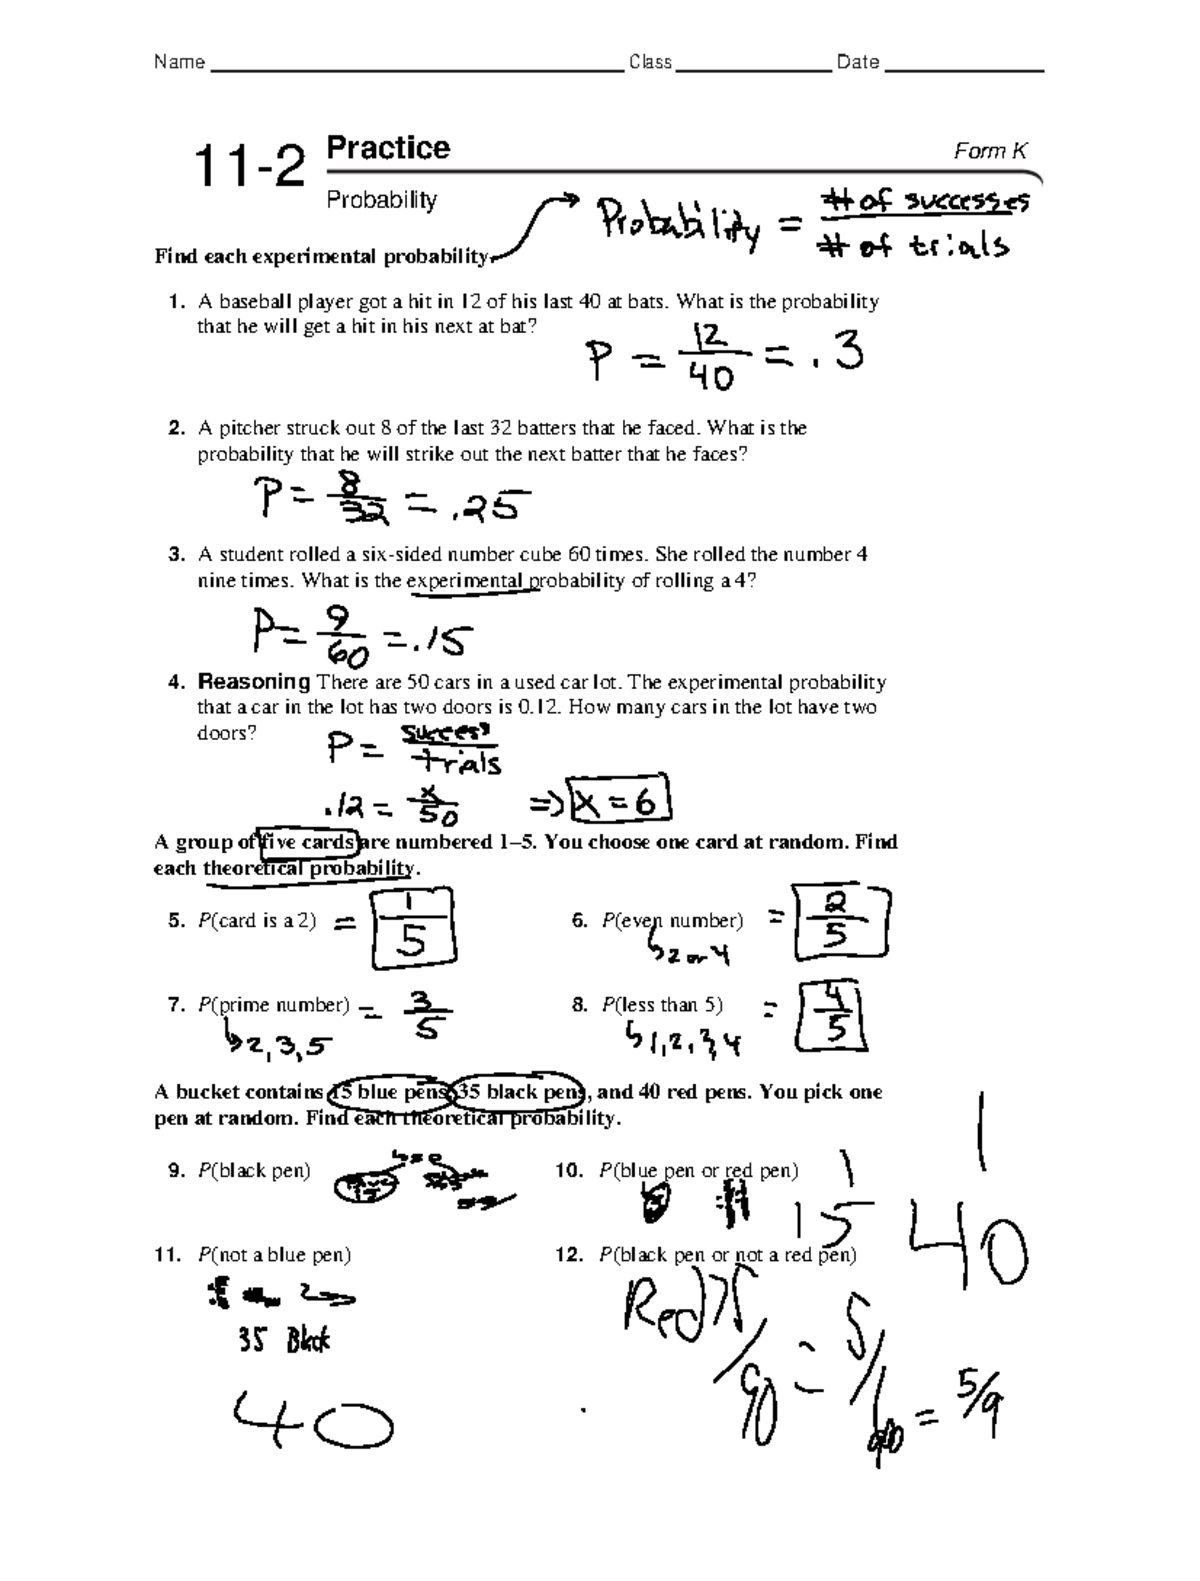 Name Class Date
11-2 Practice Form K
Probability
Probability = # of successes / # of trials
Find each experimental probability.
1. A baseball player got a hit in 12 of his last 40 at bats. What is the probability
that he will get a hit in his next at bat?
P = 12/40 = .3
2. A pitcher struck out 8 of the last 32 batters that he faced. What is the
probability that he will strike out the next batter that he faces?
P = 8/32 = .25
3. A student rolled a six-sided number cube 60 times. She rolled the number 4
nine times. What is the experimental probability of rolling a 4?
P = 9/60 = .15
4. Reasoning There are 50 cars in a used car lot. The experimental probability
that a car in the lot has two doors is 0.12. How many cars in the lot have two
doors?
P = success/trials
.12 = x/50 => x = 6
A group of five cards are numbered 1–5. You choose one card at random. Find
each theoretical probability.
5. P(card is a 2) = 1/5
6. P(even number) = 2/5
2 or 4
7. P(prime number) = 3/5
2, 3, 5
8. P(less than 5) = 4/5
1, 2, 3, 4
A bucket contains 15 blue pens, 35 black pens, and 40 red pens. You pick one
pen at random. Find each theoretical probability.
9. P(black pen)
10. P(blue pen or red pen)
1
1
15
40
11. P(not a blue pen)
35 Black
40
12. P(black pen or not a red pen)
Red
/90 = 5/
= 5/9